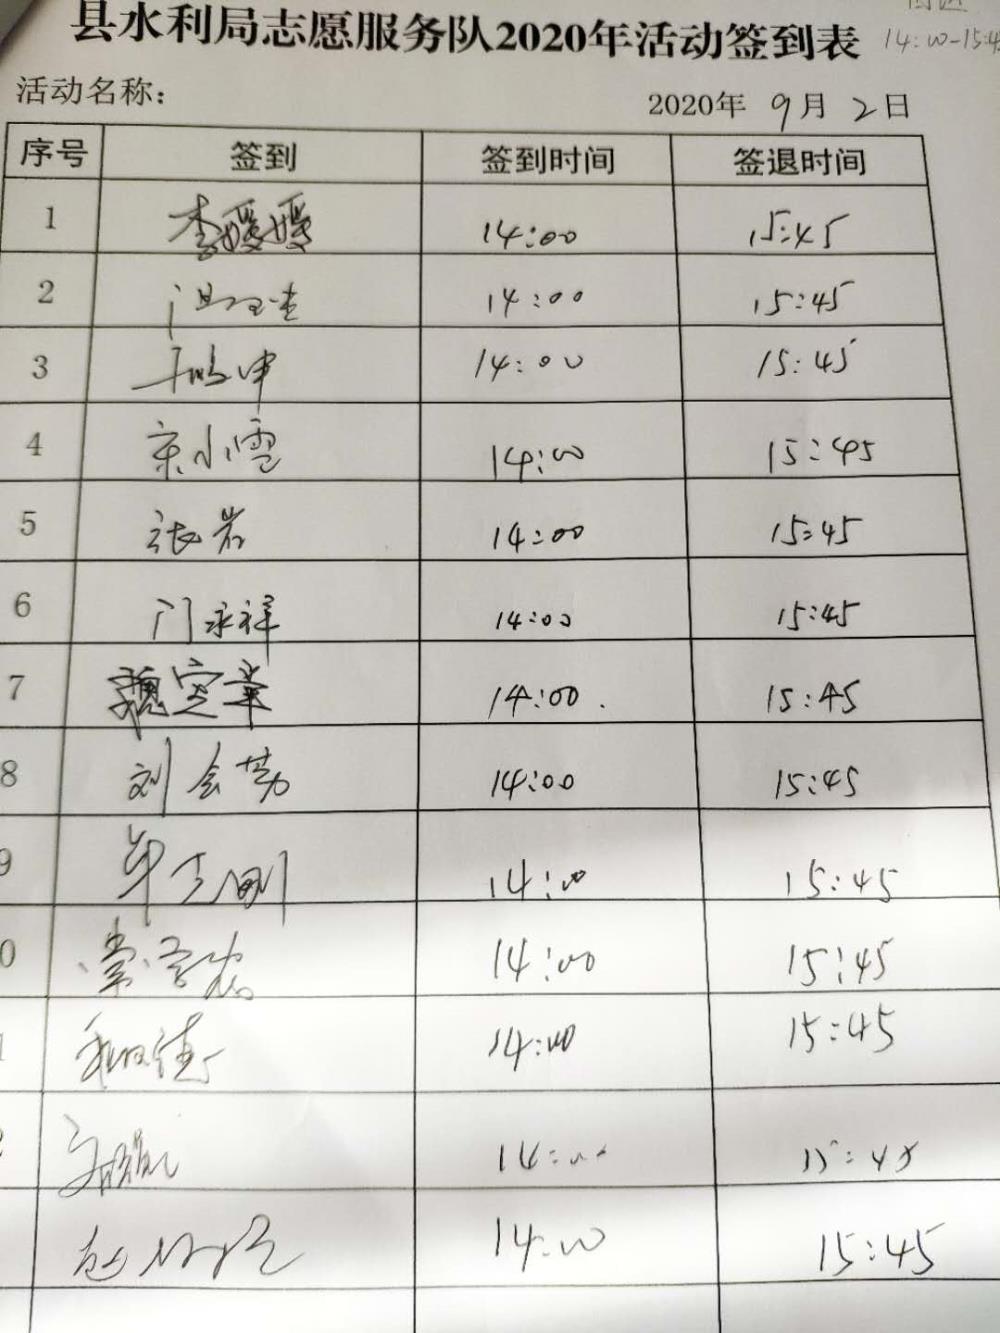 县水利局志愿服务队2020年活动签到表
14:00-15:45
活动名称：
2020年 9月 2日
序号 签到 签到时间 签退时间
1 李媛媛 14:00 15:45
2 14:00 15:45
3 14:00 15:45
4 宋小雪 14:00 15:45
5 张岩 14:00 15:45
6 门永祥 14:00 15:45
7 魏宝华 14:00 15:45
8 刘会芬 14:00 15:45
9 14:00 15:45
0 14:00 15:45
14:00 15:45
14:00 15:45
14:00 15:45